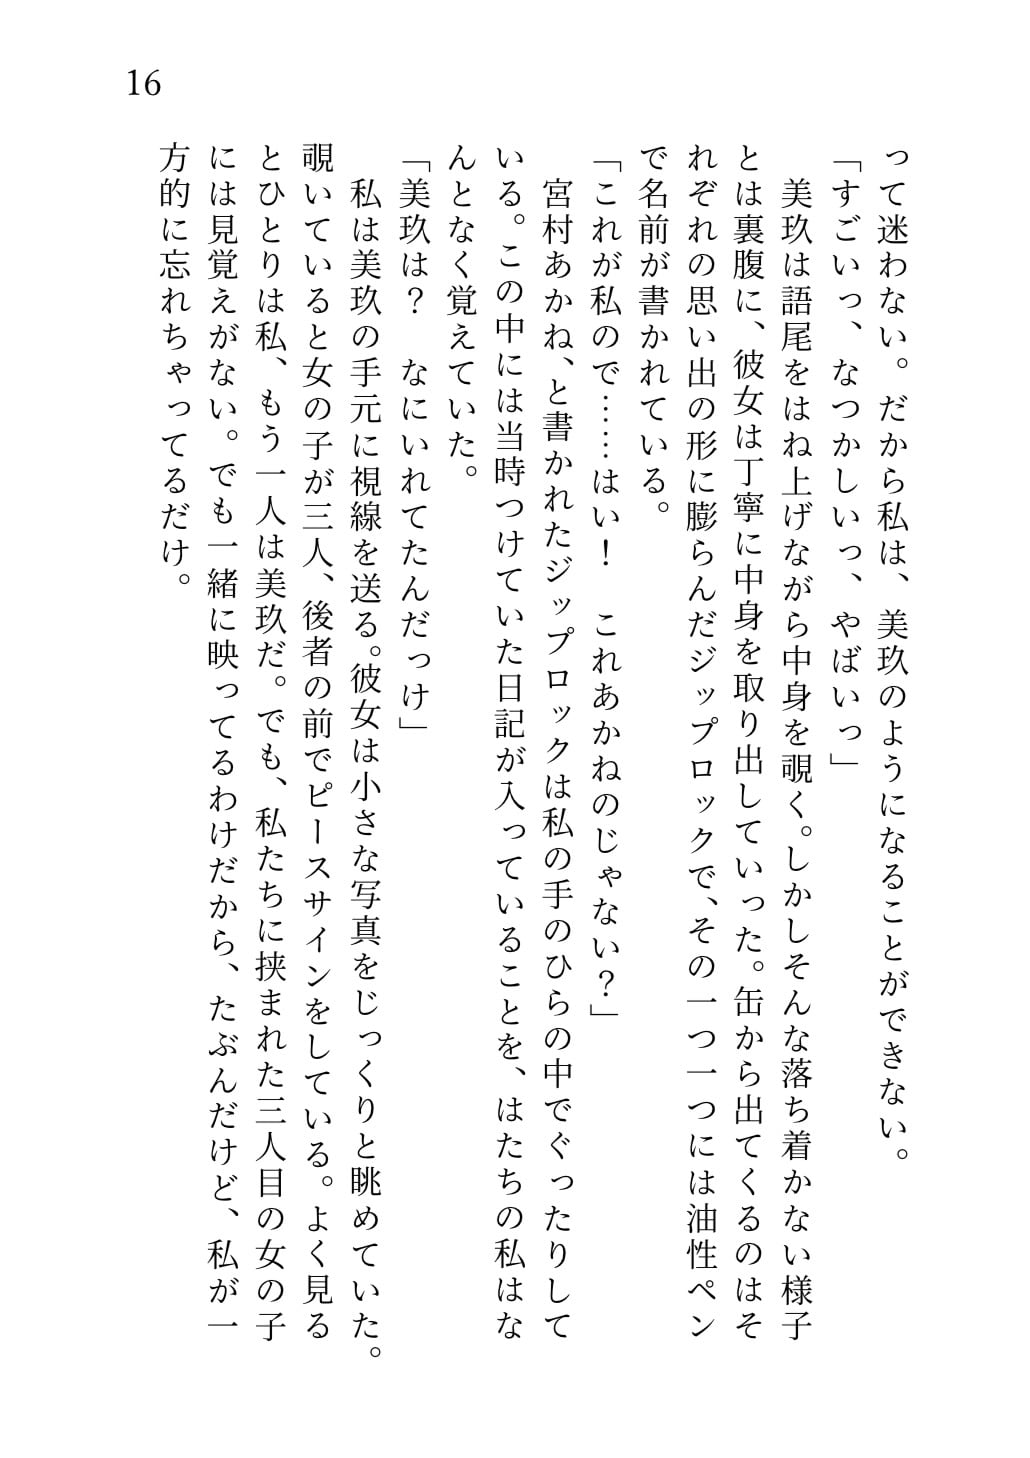 16
って迷わない。だから私は、美玖のようになることができない。
「すごいっ、なつかしいっ、やばいっ」
　美玖は語尾をはね上げながら中身を覗く。しかしそんな落ち着かない様子
とは裏腹に、彼女は丁寧に中身を取り出していった。缶から出てくるのはそ
れぞれの思い出の形に膨らんだジップロックで、その一つ一つには油性ペン
で名前が書かれている。
「これが私ので……はい！　これあかねのじゃない？」
　宮村あかね、と書かれたジップロックは私の手のひらの中でぐったりして
いる。この中には当時つけていた日記が入っていることを、はたちの私はな
んとなく覚えていた。
「美玖は？　なにいれてたんだっけ」
　私は美玖の手元に視線を送る。彼女は小さな写真をじっくりと眺めていた。
覗いていると女の子が三人、後者の前でピースサインをしている。よく見る
とひとりは私、もう一人は美玖だ。でも、私たちに挟まれた三人目の女の子
には見覚えがない。でも一緒に映ってるわけだから、たぶんだけど、私が一
方的に忘れちゃってるだけ。